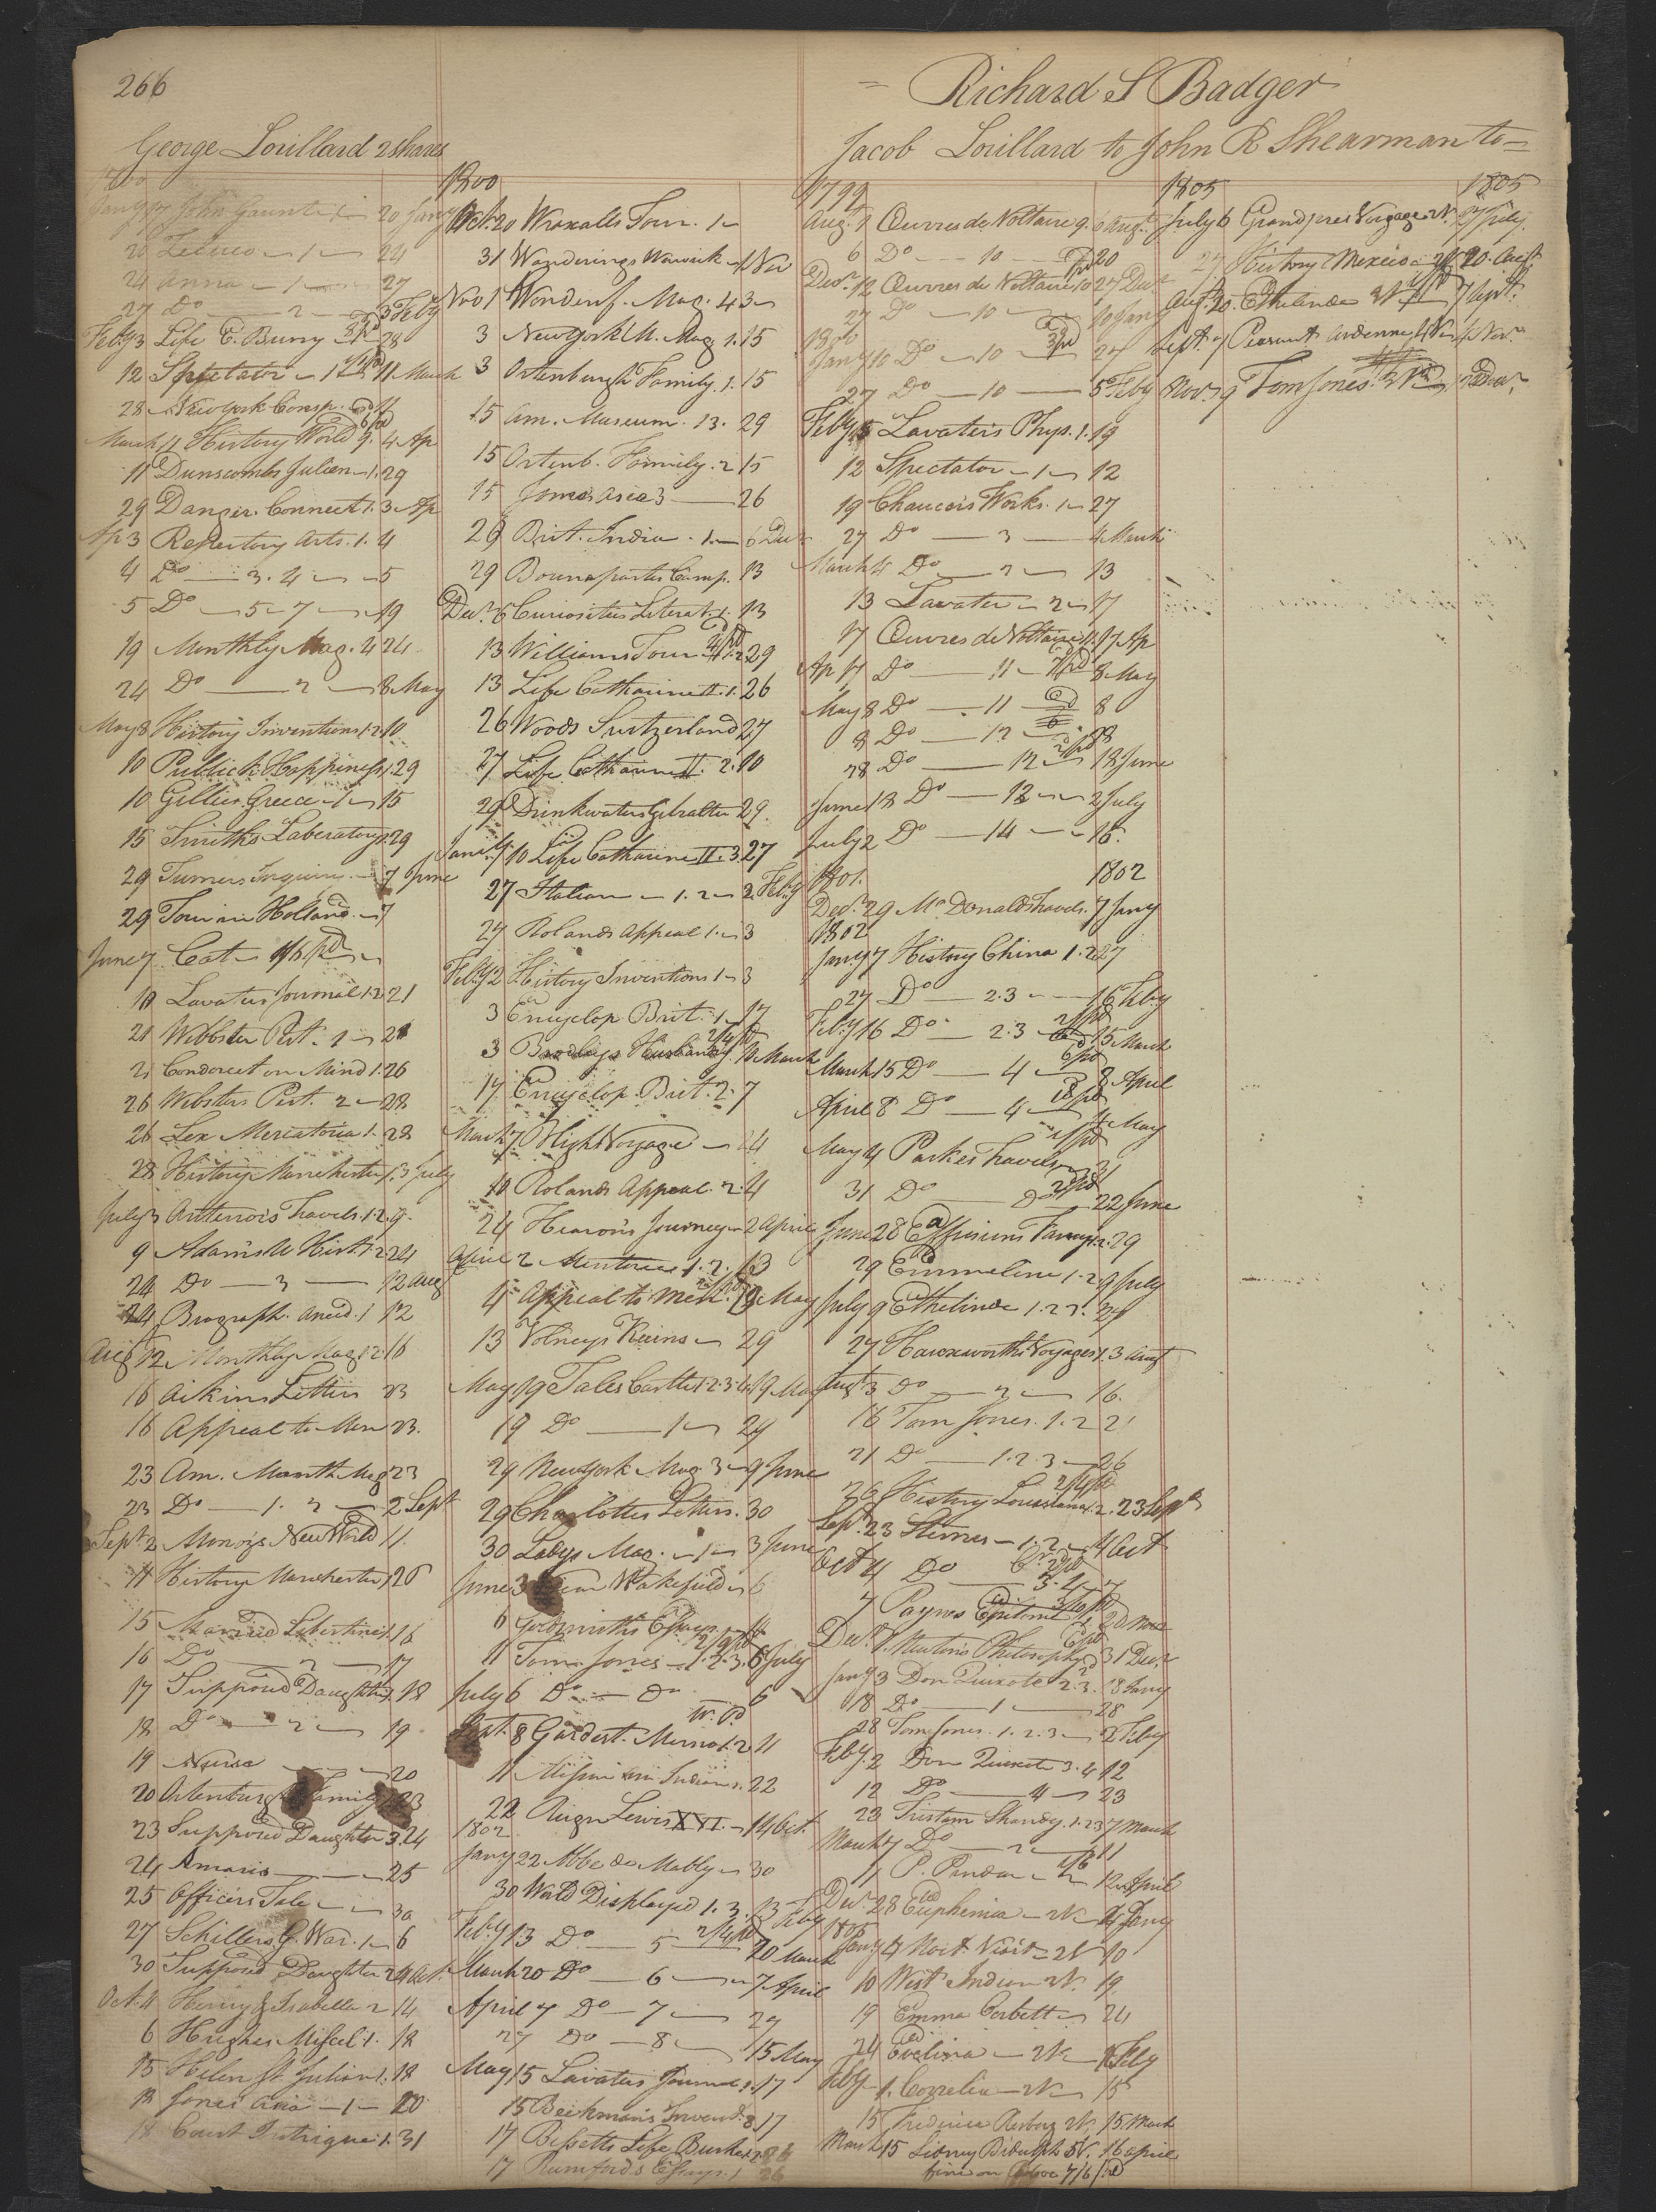 266
Richard S Badger
George Lorillard 2 shares
Jacob Lorillard to John R Shearman to
1800
Jany 17 John Gaunt 1 20 Jany
20 Zeluco 1 24
24 Anna 1 27
27 Do 2 3 Feby
Feby 3 Life E. Bruny 28
12 Spectator 1 11 March
28 New York Consp.
March 4 History World 9. 4 Ap
11 Dunscombs Julien 1. 29
29 Danger. Connect 1. 3 Ap
Ap 3 Repertory Arts. 1. 4
4 Do 3. 4 5
5 Do 5 7 19
19 Monthly Mag. 4 24
24 Do 2 8 May
May 8 History Inventions 1.2 10
10 Publick Happiness 1 29
10 Gillies Greece 1 15
15 Smiths Laberatory 29
29 Turners Inquiry 7 June
29 Tour in Holland 7
June 7 Cat 1/6 pd
10 Lavaters Journal 1.2 21
21 Webster Pert. 1 26
21 Condorcet on Mind 1. 26
26 Websters Pert. 2 28
26 Lex Mercatoria 1. 28
28 History Manchester 1. 3 July
July 3 Antenors Travels. 1.2. 9
9 Adams's U Hist. 1.2 24
24 Do 3 12 Aug
24 Biograph. Anecd. 1 12
Aug 12 Monthly Mag 1.2 16
16 Aikins Letters 23
16 Appeal to Men 23.
23 Am. Month Mag 23
23 Do 1. 2 2 Sept
Sept 2 Monroy's New World 11.
11 History Manchester 1 26
15 Married Libertine 1. 16
16 Do 2 17
17 Supposed Daughter 1 18
18 Do 2 19
19 Nurse 20
20 Ortenburg Family 1 23
23 Supposed Daughter 3. 24
24 Amaris 25
25 Officers Tale 30
27 Schillers G. War. 1 6
30 Supposed Daughter 2 4 Oct.
Oct. 4 Henry & Isabella 2 14
6 Hughes Miscel. 1. 18
15 Helen St Julian 1. 18
18 Jones Asia 1 20
18 Court Intrigue 1. 31
1800
Oct. 20 Wraxalls Tour. 1
31 Wanderings Warwick 1 Nov
Nov 1 Wonderf. Mag. 4 3
3 New York M. Mag 1. 15
3 Ortenburgh Family. 1. 15
15 Am. Museum. 13. 29
15 Ortenb. Family. 2 15
15 Jones Asia 3 26
29 Brit. India. 1. 6 Decr
29 Bounapartes Camp. 13
Decr. 6 Curiosities Literat. 1. 13
13 Williams Tour 1.2 29
13 Life Catharine II. 1. 26
26 Woods Switzerland 27
27 Life Catharine II. 2. 10
29 Drinkwaters Gibralter 29.
Jany 10 Life Catharine II. 3. 27
27 Italian 1. 2 2 Feby
27 Rolands Appeal 1. 3
Feby 2 History Inventions 1 3
3 Encyclop Brit. 1 17
3 Bradleys Husbandry. 10 March
17 Encyclop. Brit. 2. 7
March 7 Voyage 24
10 Rolands Appeal. 2. 4
24 Hearons Journey 2 April
April 2 Mentoria 1. 2. 13
4 Appeal to Men. 19 May
13 Volneys Ruins 29
May 19 Tales Castle 1 2. 3. 4 19 May
19 Do 1 29
29 New York Mag. 3 9 June
29 Charlottes Letters. 30
30 Ladys Mag. 1 3 June
June 3 Vicar Wakefield 6
6 Goldsmiths Essays 11
11 Tom. Jones 1. 2. 3. 6 July
July 6 Do Do 6
Sept. 8 Gardest. Memo 1. 2 11
11 Indians. 22
22 Reign Lewis XVI. 14 Oct.
1802
Jany 22 Abbe de Mably 30
30 World Displayed 1. 3. 13 Feby
Feby 13 Do 5 2/4 pd 20 March
March 20 Do 6 7 April
April 7 Do 7 27
27 Do 8 15 May
May 15 Lavaters Journal 1. 17
15 Beckmans Invent. 3 17
17 Bissetts Life Burke 26
17 Rumfords Essays. 1 26
1799
Aug. 1 Œuvres de Voltaire 9. 6 Augt.
6 Do 10 20
Decr. 12 Œuvres de Voltaire 10 27 Decr
27 Do 10 10 Jany
1800
Jany 10 Do 10 27
27 Do 10 5 Feby
Feby 5 Lavaters Phys. 1. 19
12 Spectator 1 12
19 Chaucers Works. 1 27
27 Do 3 4 March
March 4 Do 2 13
13 Lavater 2 17
17 Œuvres de Voltaire 11. 17 Ap
Ap 17 Do 11 8 May
May 8 Do 11 8
8 Do 12 28
28 Do 12 18 June
June 18 Do 13 2 July
July 2 Do 14 15.
1801. 1802
Decr. 29 McDonalds Travels. 7 Jany
1802
Jany 7 History China 1. 2 27
27 Do 2.3 16 Feby
Feby 16 Do 2.3 15 March
March 15 Do 4 8 April
April 8 Do 4 4 May
May 4 Parkes Travels 31
31 Do Do 22 June
June 28 Effusions Fancy 1.2. 29
29 Emmeline 1. 2. 9 July
July 9 Ethelinde 1. 2 3. 27
27 Hawxworths Voyages 1. 3 Augt
Augt 3 Do 2 16.
16 Tom Jones. 1. 2 21
21 Do 1. 2. 3 26
26 History Louisiana 1. 2. 23 Sept
Sept. 23 Sterne 1. 2 4 Oct
Oct 4 Do 3. 4 7
7 Paynes Epitome 1 20 Nov
Decr. 1. Newtons Philosophy 31 Decr
Jany 3 Don Quixote 2. 3. 18 Jany
18 Do 1 28
28 Tom Jones. 1. 2. 3 2 Feby
Feby. 2 Don Quixote 3. 4 12
12 Do 4 23
23 Tristam Shandy. 1. 2 3 7 March
March 7 Do 2 11
11 P. Pindar 12 April
Decr. 28 Euphemia 2V 4 Jany
1805
Jany 4 Visit 2V 10
10 West Indian 2V. 19
19 Emma Corbett 24
24 Evelina 2V 1 Feby
Feby 1. Cornelia 2V 15
15 2V. 15 March
March 15 Sidney Bidulph 5V. 16 April
fine on above 7/6 pd
1805 1805
July 6 Grandpres Voyage 2V. 27 July.
27 History Mexico 20 Augt
Augt. 20. Ethelinde 7 Sept.
Sept. 7 Peasant Ardenne 4V Novr
Novr. 9 Tom Jones. 3V Decr.